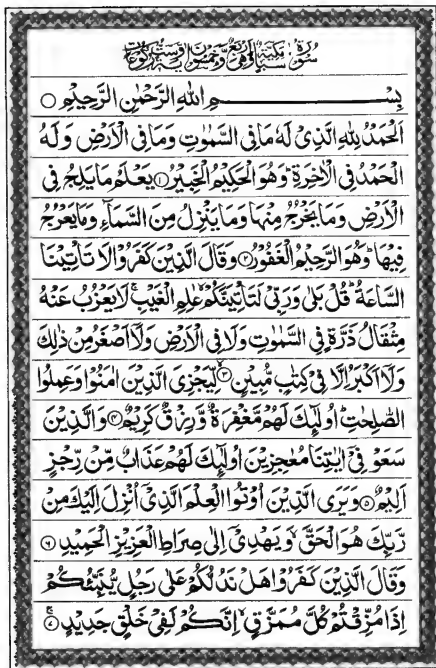 سُوْرَةُ سَبَاٍ مَكِّيَّةٌ وَّهِيَ اَرْبَعٌ وَّخَمْسُوْنَ اٰيَةً وَّسِتُّ رُكُوْعَاتٍ
بِسْمِ اللّٰهِ الرَّحْمٰنِ الرَّحِيْمِ ○
اَلْحَمْدُ لِلّٰهِ الَّذِىْ لَهٗ مَا فِى السَّمٰوٰتِ وَمَا فِى الْاَرْضِ وَلَهُ
الْحَمْدُ فِى الْاٰخِرَةِ ؕ وَهُوَ الْحَكِيْمُ الْخَبِيْرُ ① يَعْلَمُ مَا يَلِجُ فِى
الْاَرْضِ وَمَا يَخْرُجُ مِنْهَا وَمَا يَنْزِلُ مِنَ السَّمَآءِ وَمَا يَعْرُجُ
فِيْهَا ؕ وَهُوَ الرَّحِيْمُ الْغَفُوْرُ ② وَقَالَ الَّذِيْنَ كَفَرُوْا لَا تَاْتِيْنَا
السَّاعَةُ ؕ قُلْ بَلٰى وَرَبِّىْ لَتَاْتِيَنَّكُمْ ۙ عٰلِمِ الْغَيْبِ ۚ لَا يَعْزُبُ عَنْهُ
مِثْقَالُ ذَرَّةٍ فِى السَّمٰوٰتِ وَلَا فِى الْاَرْضِ وَلَاۤ اَصْغَرُ مِنْ ذٰلِكَ
وَلَاۤ اَكْبَرُ اِلَّا فِىْ كِتٰبٍ مُّبِيْنٍ ③ لِّيَجْزِىَ الَّذِيْنَ اٰمَنُوْا وَعَمِلُوا
الصّٰلِحٰتِ ؕ اُولٰٓئِكَ لَهُمْ مَّغْفِرَةٌ وَّرِزْقٌ كَرِيْمٌ ④ وَالَّذِيْنَ
سَعَوْ فِىْۤ اٰيٰتِنَا مُعٰجِزِيْنَ اُولٰٓئِكَ لَهُمْ عَذَابٌ مِّنْ رِّجْزٍ
اَلِيْمٌ ⑤ وَيَرَى الَّذِيْنَ اُوْتُوا الْعِلْمَ الَّذِىْۤ اُنْزِلَ اِلَيْكَ مِنْ
رَّبِّكَ هُوَ الْحَقَّ ۙ وَيَهْدِىْۤ اِلٰى صِرَاطِ الْعَزِيْزِ الْحَمِيْدِ ⑥
وَقَالَ الَّذِيْنَ كَفَرُوْا هَلْ نَدُلُّكُمْ عَلٰى رَجُلٍ يُّنَبِّئُكُمْ
اِذَا مُزِّقْتُمْ كُلَّ مُمَزَّقٍ ۙ اِنَّكُمْ لَفِىْ خَلْقٍ جَدِيْدٍ ⑦